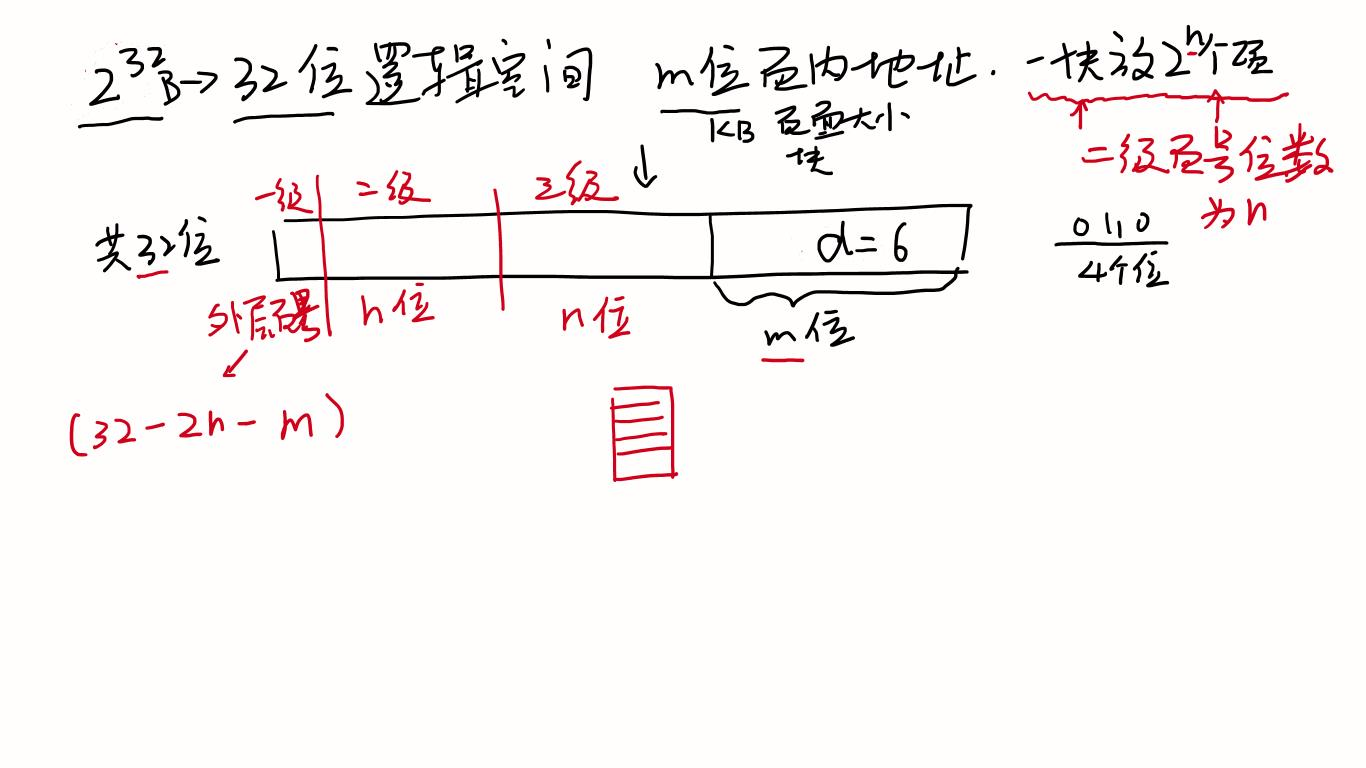 2^32B→32位逻辑空间 m位页内地址. 一块放2^n个项
KB 页面大小
块
二级页号位数
为n
一级 二级 三级
共32位
d=6
0110
4个位
外层页号 n位 n位
m位
(32-2n-m)